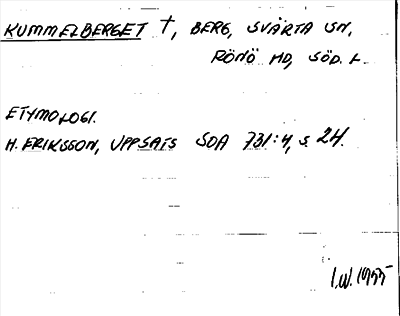 KUMMELBERGET †, BERG, SVÄRTA SN,
RÖNÖ HD, SÖD. L.
ETYMOLOGI.
H. ERIKSSON, UPPSATS SOA 731:4, s. 24.
I.W. 1955